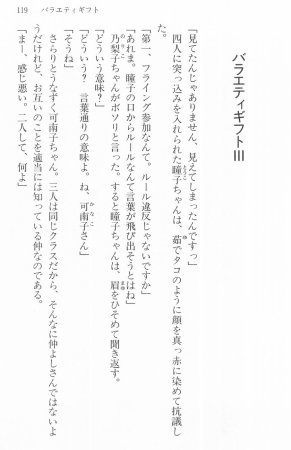 119　バラエティギフト
バラエティギフトIII
「見てたんじゃありません、見えてしまったんですっ」
四人に突っ込みを入れられた瞳子ちゃんは、茹でタコのように顔を真っ赤に染めて抗議し
た。
「第一、フライング参加なんて。ルール違反じゃないですか」
「あれま。瞳子の口からルールなんて言葉が飛び出そうとはね」
乃梨子ちゃんがボソリと言った。すると瞳子ちゃんは、眉をひそめて聞き返す。
「どういう意味？」
「どういう？　言葉通りの意味よ。ね、可南子さん」
「そうね」
さらりとうなずく可南子ちゃん。三人は同じクラスだから、そんなに仲よしさんではないよ
うだけれど、お互いのことを適当には知っている仲なのである。
「まー、感じ悪い。二人して、何よ」